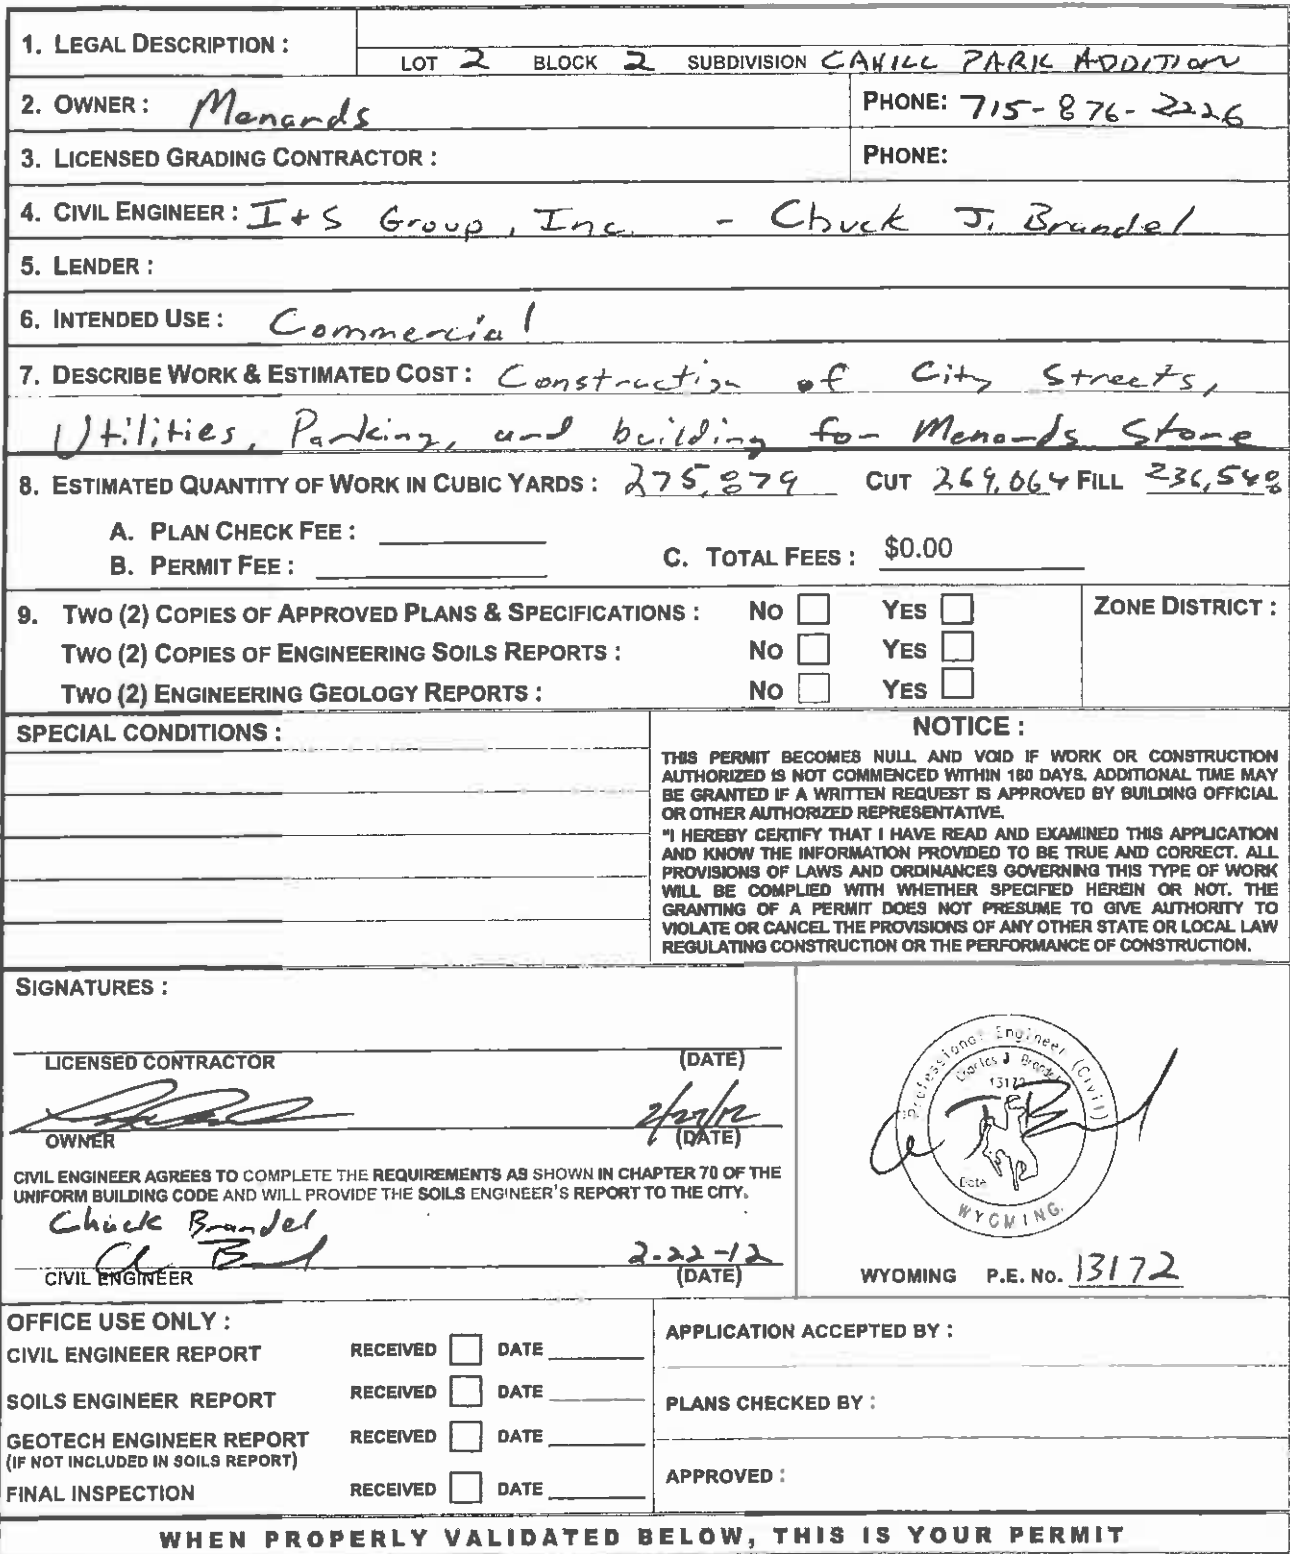 1. LEGAL DESCRIPTION :
LOT 2 BLOCK 2 SUBDIVISION CAHILL PARK ADDITION
2. OWNER : Menards PHONE: 715-876-2226
3. LICENSED GRADING CONTRACTOR : PHONE:
4. CIVIL ENGINEER : I+S Group, Inc. - Chuck J. Brandel
5. LENDER :
6. INTENDED USE : Commercial
7. DESCRIBE WORK & ESTIMATED COST : Construction of City Streets,
Utilities, Parking, and building for Menards Store
8. ESTIMATED QUANTITY OF WORK IN CUBIC YARDS : 275,879 CUT 269,064 FILL 236,548
A. PLAN CHECK FEE :
B. PERMIT FEE : C. TOTAL FEES : $0.00
9. TWO (2) COPIES OF APPROVED PLANS & SPECIFICATIONS : NO YES ZONE DISTRICT :
TWO (2) COPIES OF ENGINEERING SOILS REPORTS : NO YES
TWO (2) ENGINEERING GEOLOGY REPORTS : NO YES
SPECIAL CONDITIONS :
NOTICE :
THIS PERMIT BECOMES NULL AND VOID IF WORK OR CONSTRUCTION
AUTHORIZED IS NOT COMMENCED WITHIN 180 DAYS. ADDITIONAL TIME MAY
BE GRANTED IF A WRITTEN REQUEST IS APPROVED BY BUILDING OFFICIAL
OR OTHER AUTHORIZED REPRESENTATIVE.
"I HEREBY CERTIFY THAT I HAVE READ AND EXAMINED THIS APPLICATION
AND KNOW THE INFORMATION PROVIDED TO BE TRUE AND CORRECT. ALL
PROVISIONS OF LAWS AND ORDINANCES GOVERNING THIS TYPE OF WORK
WILL BE COMPLIED WITH WHETHER SPECIFIED HEREIN OR NOT. THE
GRANTING OF A PERMIT DOES NOT PRESUME TO GIVE AUTHORITY TO
VIOLATE OR CANCEL THE PROVISIONS OF ANY OTHER STATE OR LOCAL LAW
REGULATING CONSTRUCTION OR THE PERFORMANCE OF CONSTRUCTION.
SIGNATURES :
LICENSED CONTRACTOR (DATE)
2/27/12
OWNER (DATE)
CIVIL ENGINEER AGREES TO COMPLETE THE REQUIREMENTS AS SHOWN IN CHAPTER 70 OF THE
UNIFORM BUILDING CODE AND WILL PROVIDE THE SOILS ENGINEER'S REPORT TO THE CITY.
Chuck Brandel
2-22-12
CIVIL ENGINEER (DATE)
Professional Engineer (Civil)
Charles J. Brandel
13172
Date
WYOMING
WYOMING P.E. NO. 13172
OFFICE USE ONLY :
CIVIL ENGINEER REPORT RECEIVED DATE
SOILS ENGINEER REPORT RECEIVED DATE
GEOTECH ENGINEER REPORT RECEIVED DATE
(IF NOT INCLUDED IN SOILS REPORT)
FINAL INSPECTION RECEIVED DATE
APPLICATION ACCEPTED BY :
PLANS CHECKED BY :
APPROVED :
WHEN PROPERLY VALIDATED BELOW, THIS IS YOUR PERMIT